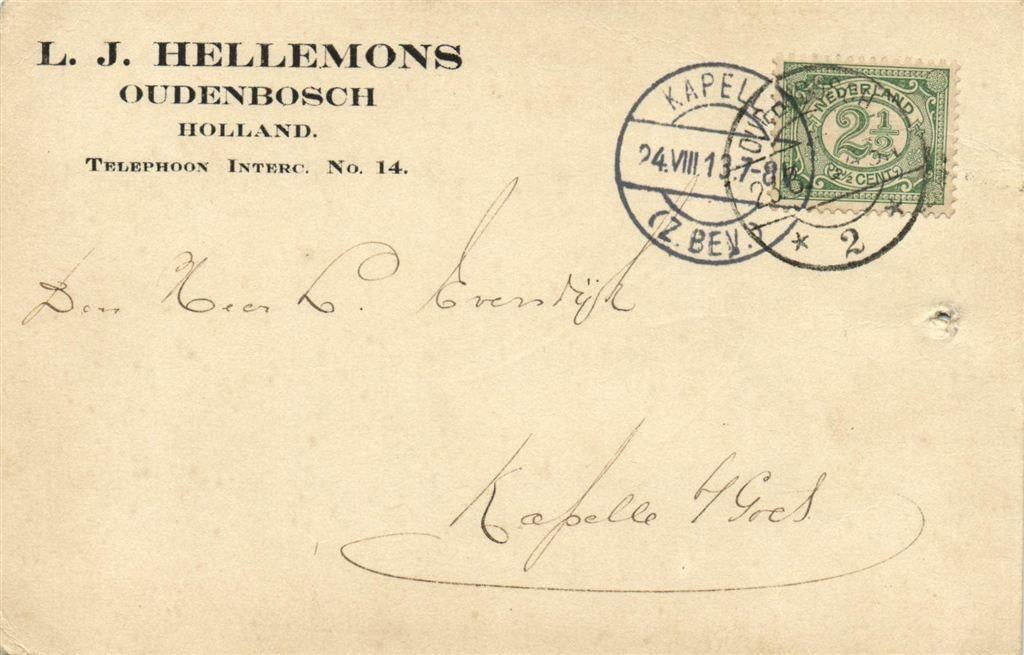 L. J. HELLEMONS
OUDENBOSCH
HOLLAND.
TELEPHOON INTERC. No. 14.
KAPELLE
24.VIII.13.7-8V.
(Z.BEV.)
2
NEDERLAND
2½
(2½ CENT)
Den Heer L. Evendijk
Kapelle b/ Goes